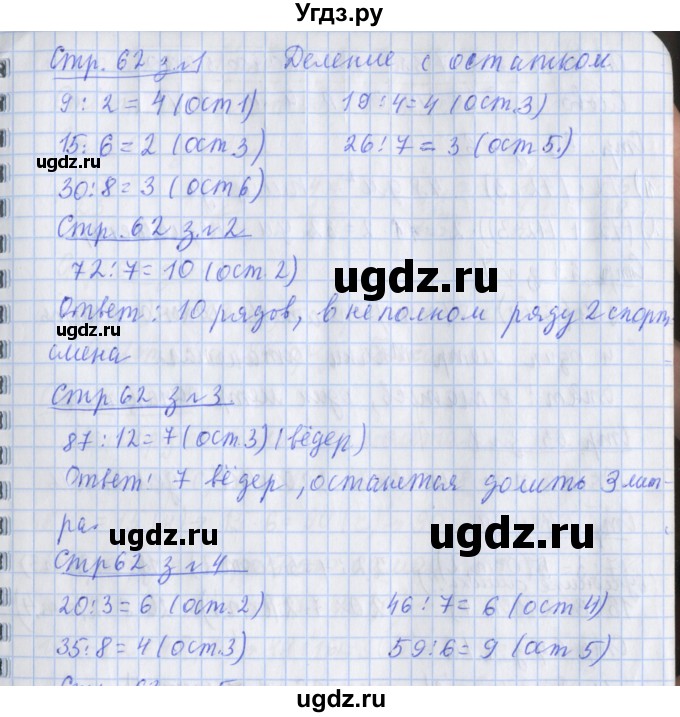 Угдз.ру
Стр. 62 з.№1 Деление с остатком
9 : 2 = 4 (ост 1) 19 : 4 = 4 (ост. 3)
15 : 6 = 2 (ост. 3) 26 : 7 = 3 (ост 5.)
ugdz.ru
30 : 8 = 3 (ост 6)
Стр. 62 з.№2
72 : 7 = 10 (ост. 2)
ugdz.ru
Ответ: 10 рядов, в неполном ряду 2 спорт-
ugdz.ru
смена
Стр 62 з №3.
87 : 12 = 7 (ост. 3) (вёдер)
Ответ: 7 вёдер, останется долить 3 лит-
ра.
ugdz.ru ugdz.ru
Стр 62 з №4
20 : 3 = 6 (ост. 2) 46 : 7 = 6 (ост 4)
35 : 8 = 4 (ост. 3) 59 : 6 = 9 (ост 5)
ugdz.ru